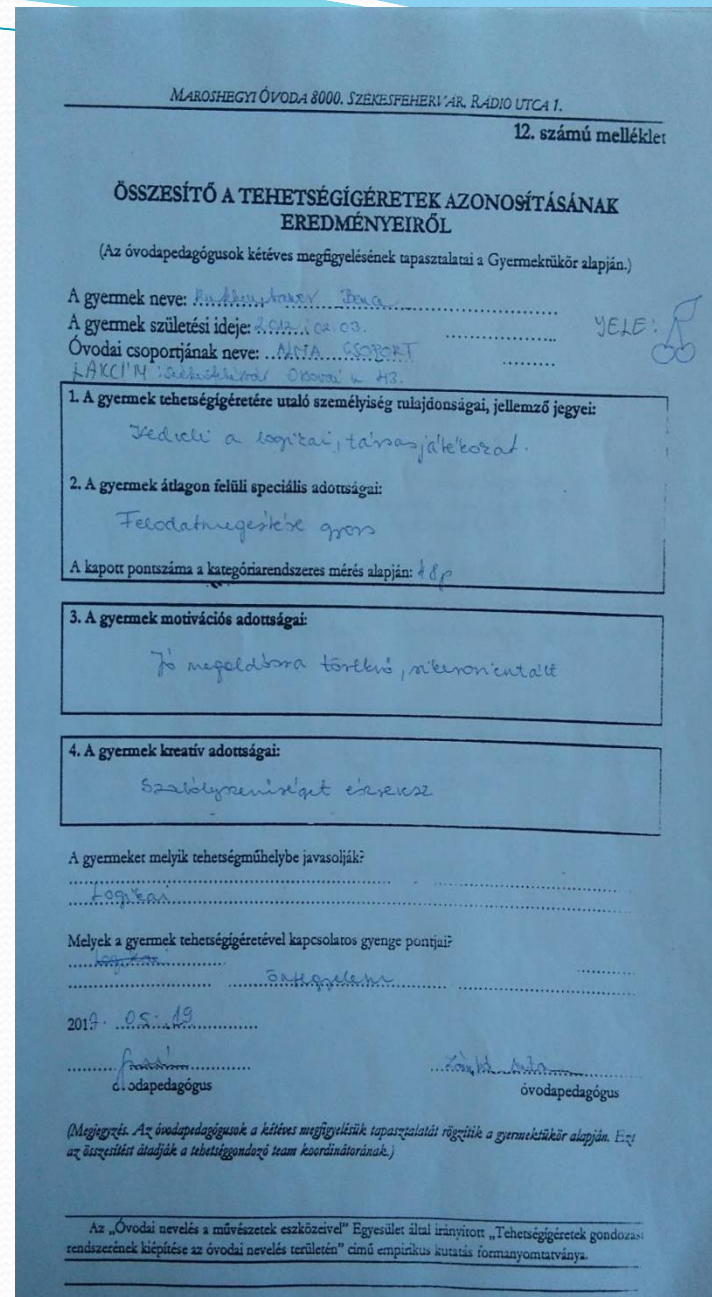 MAROSHEGYI ÓVODA 8000. SZÉKESFEHÉRVÁR, RÁDIO UTCA 1.
12. számú melléklet
ÖSSZESÍTŐ A TEHETSÉGÍGÉRETEK AZONOSÍTÁSÁNAK
EREDMÉNYEIRŐL
(Az óvodapedagógusok kétéves megfigyelésének tapasztalatai a Gyermektükör alapján.)
A gyermek neve:
A gyermek születési ideje: 2012. 02. 03.
JELE:
Óvodai csoportjának neve: ALMA CSOPORT
LAKCÍM: Székesfehérvár 43.
1. A gyermek tehetségígéretére utaló személyiség tulajdonságai, jellemző jegyei:
Kedveli a logikai, társasjátékokat.
2. A gyermek átlagon felüli speciális adottságai:
Feladatmegértése gyors
A kapott pontszáma a kategóriarendszeres mérés alapján:
3. A gyermek motivációs adottságai:
Jó megoldásra törekvő, sikerorientált
4. A gyermek kreatív adottságai:
Szabályszerűséget észrevesz
A gyermeket melyik tehetségműhelybe javasolják?
Logikai
Melyek a gyermek tehetségígéretével kapcsolatos gyenge pontjai?
Logikai
önfegyelem
2017. 05. 19
óvodapedagógus
óvodapedagógus
(Megjegyzés. Az óvodapedagógusok a kétéves megfigyelésük tapasztalatát rögzítik a gyermektükör alapján. Ezt
az összesítést átadják a tehetséggondozó team koordinátorának.)
Az „Óvodai nevelés a művészetek eszközeivel" Egyesület által irányított „Tehetségígéretek gondozási
rendszerének kiépítése az óvodai nevelés területén" című empirikus kutatás formanyomtatványa.